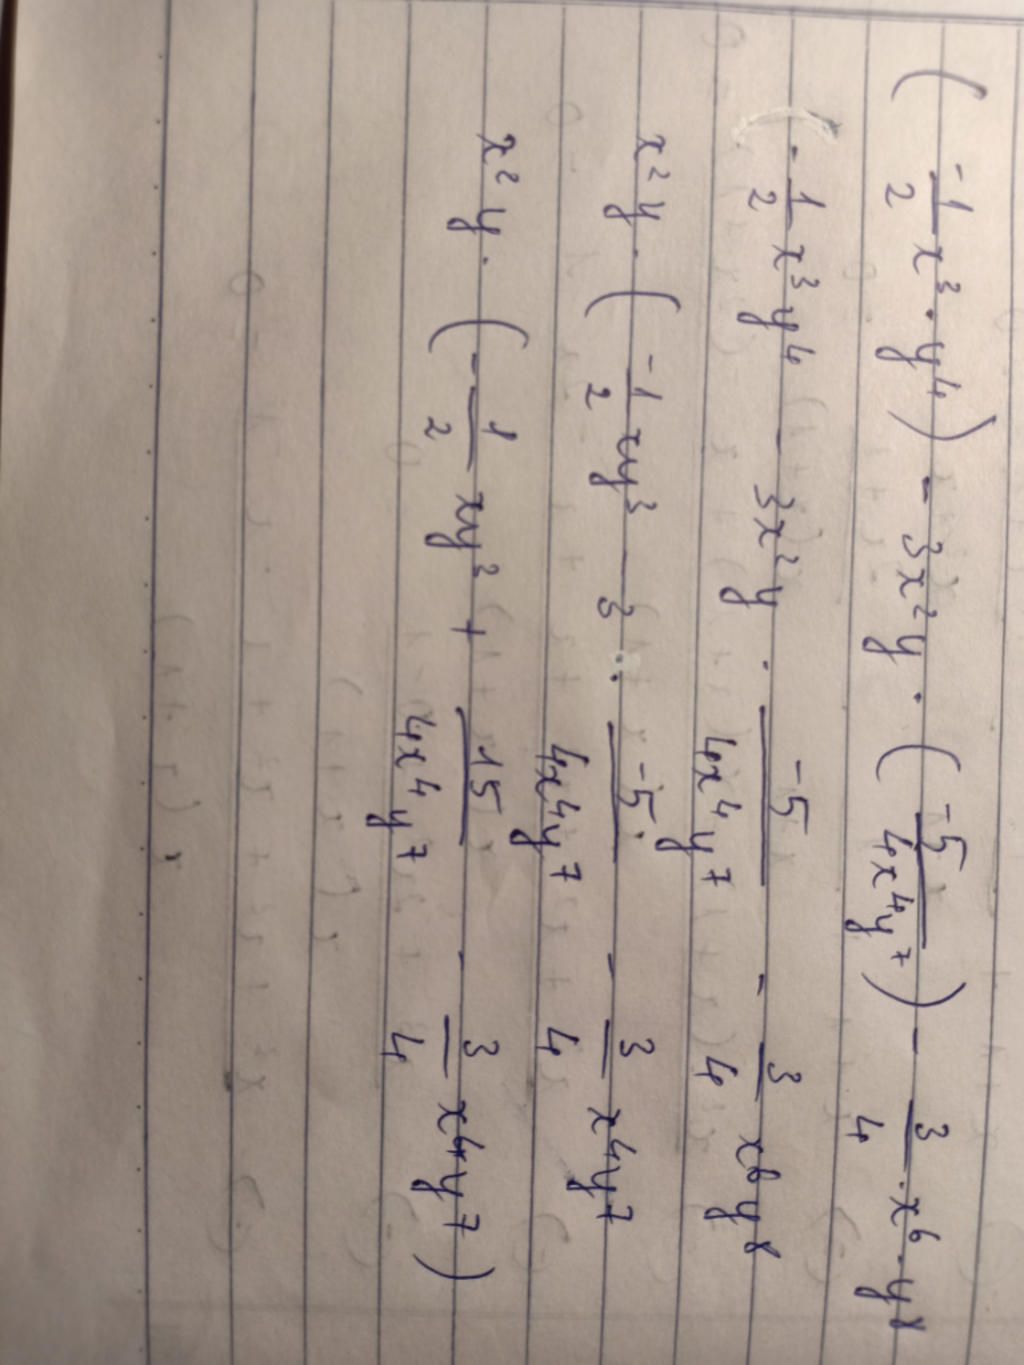 ( -1/2 x³ · y⁴ ) - 3x²y · ( -5/4x⁴y⁷ ) - 3/4 · x⁶ · y⁸
( - 1/2 x³y⁴ - 3x²y · -5/4x⁴y⁷ - 3/4 x⁶y⁸
x²y · ( -1/2 xy³ - 3 · -5/4x⁴y⁷ - 3/4 x⁴y⁷
x²y · ( - 1/2 xy³ + 15/4x⁴y⁷ - 3/4 x⁴y⁷ )